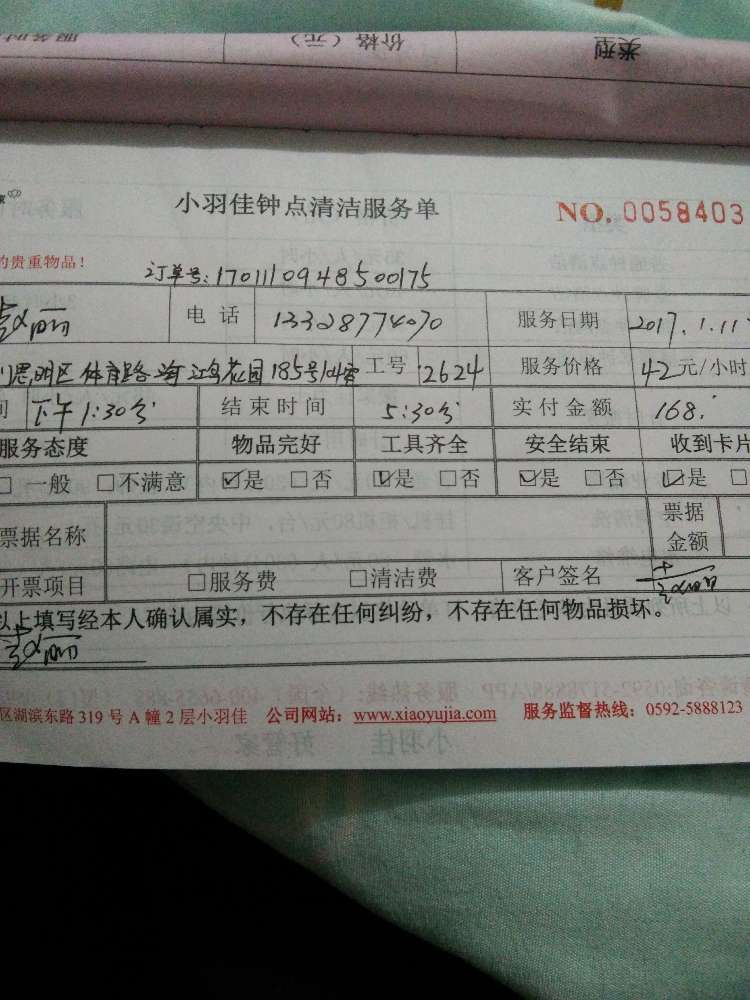 服务时 价格（元） 类型
小羽佳钟点清洁服务单 NO. 0058403
的贵重物品！
订单号:1701110948500175
电话 13328774070 服务日期 2017.1.11
思明区体育路海鸿花园185号104室 工号 2624 服务价格 42元/小时
间 下午1:30分 结束时间 5:30分 实付金额 168.
服务态度 物品完好 工具齐全 安全结束 收到卡片
□一般 □不满意 ☑是 □否 ☑是 □否 ☑是 □否 ☑是 □
票据名称 票据金额
开票项目 □服务费 □清洁费 客户签名
以上填写经本人确认属实，不存在任何纠纷，不存在任何物品损坏。
区湖滨东路319号A幢2层小羽佳 公司网站：www.xiaoyujia.com 服务监督热线：0592-5888123